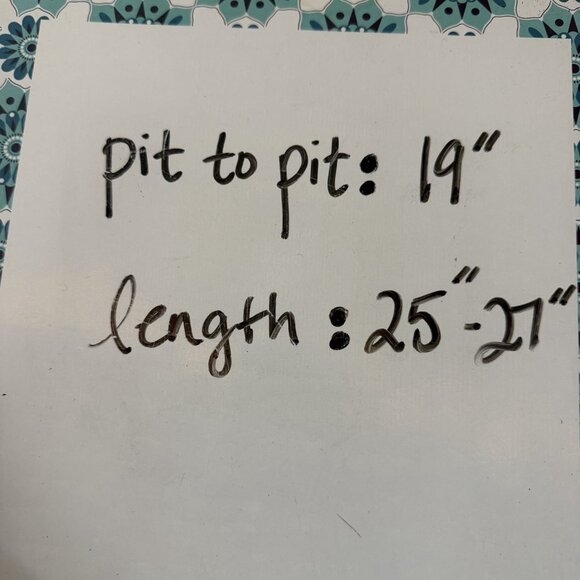 pit to pit: 19"
length: 25"-27"